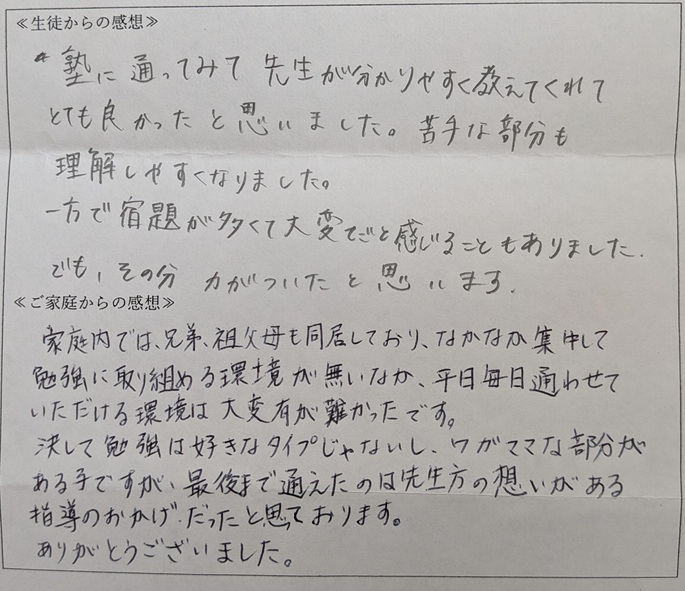 ≪生徒からの感想≫
塾に通ってみて 先生が分かりやすく教えてくれて
とても良かったと思いました。苦手な部分も
理解しやすくなりました。
一方で宿題が多くて大変だと感じることもありました.
でも、その分 力がついたと思います.
≪ご家庭からの感想≫
家庭内では、兄弟、祖父母も同居しており、なかなか集中して
勉強に取り組める環境が無いなか、平日毎日通わせて
いただける環境は大変有が難かったです。
決して勉強は好きなタイプじゃないし、ワガママな部分が
ある子ですが、最後まで通えたのは先生方の想いがある
指導のおかげだったと思っております。
ありがとうございました。